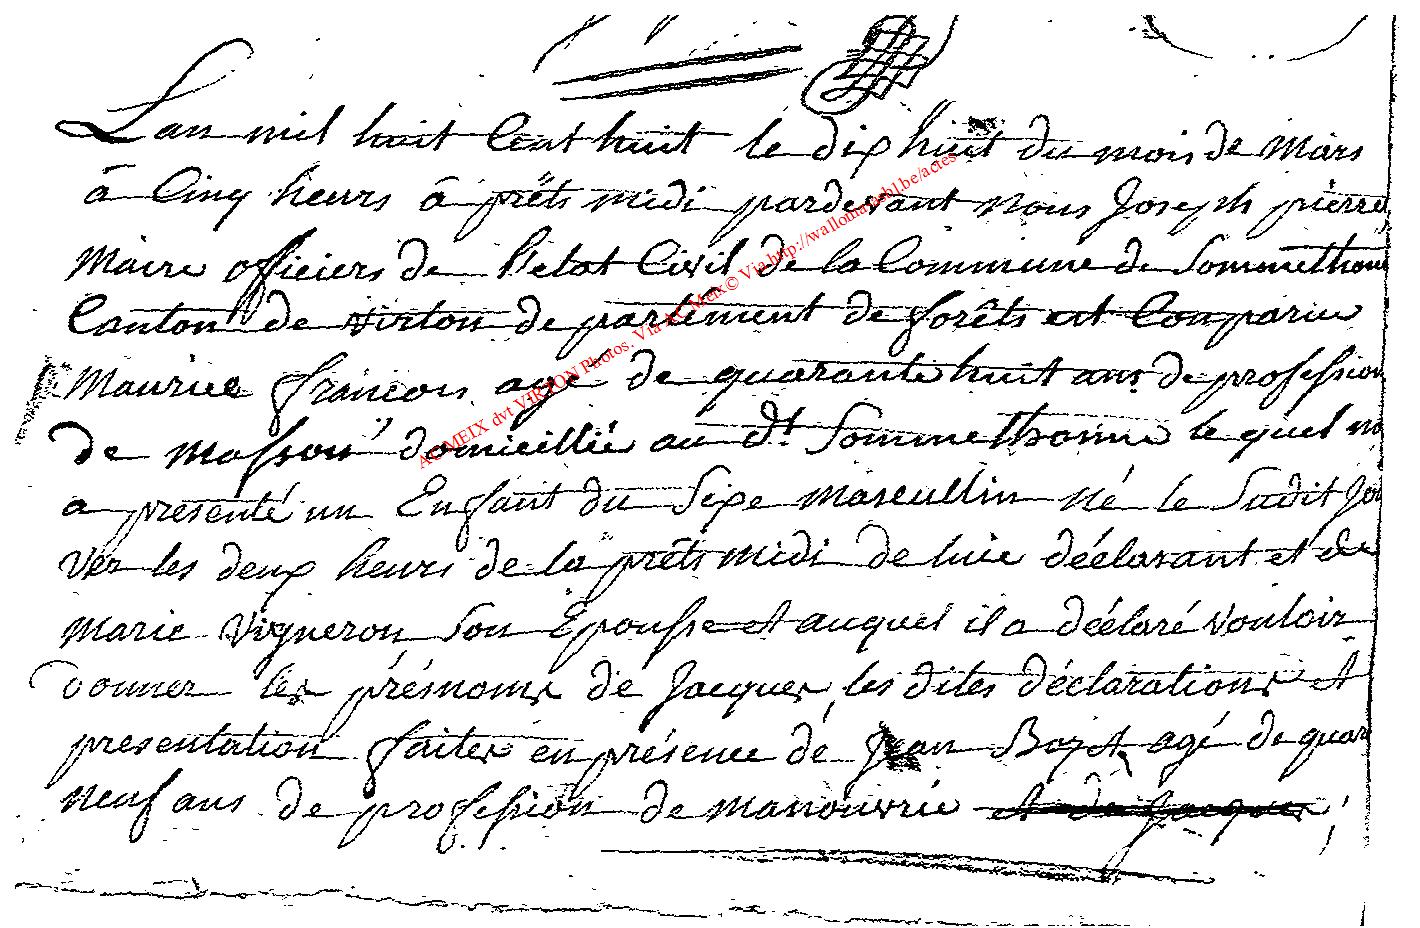 Lan mil huit Cent huit le dix huit du mois de Mars
à Cinq heurs à prêts midi pardevant nous Joseph pierre
Maire officiers de l'etat Civil de la Commune de Sommethonne
Canton de virton departement de forêts est Comparue
Maurice françois age de quarante huit ans de profession
de masson domicillié au dt Sommethonne le quel m
a presenté un Enfant du Sixe mascullin né le Sudit Jou
ver les deux heurs de la prêts midi de luie déclarant et de
Marie Vigneron Son Epousse et auquel il a déclaré vouloir
donner les présnoms de Jacques, les dites déclarations et
presentation faites en présence dé Jean agé de quara
neuf ans de profession de manouvrié et de Jacques,
ACMEIX dvt VIRTON Photos. Via AC Meix© Via http://wallomarieh1.be/actes